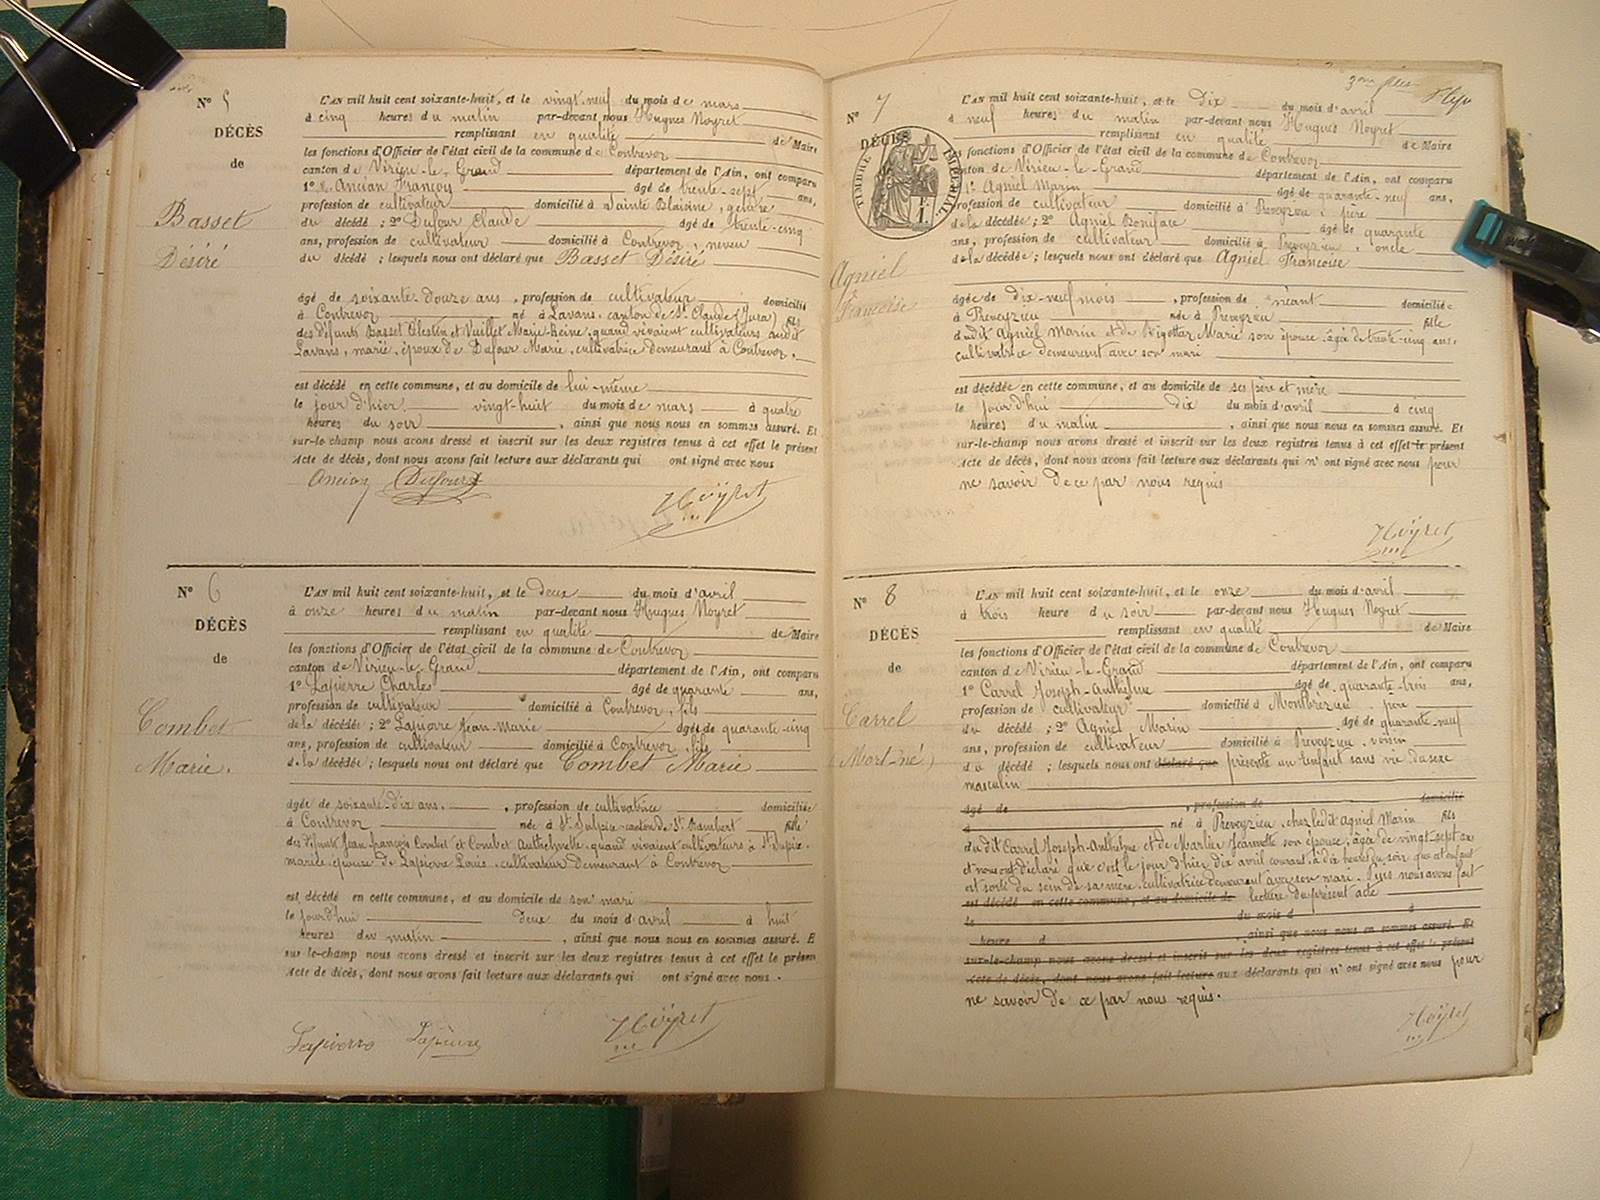 N° 5
DÉCÈS
de
Basset
Désiré
L'AN mil huit cent soixante-huit, et le vingt-neuf du mois de mars
à cinq heures du matin par-devant nous Hugues Noyret
remplissant en qualité de Maire
les fonctions d'Officier de l'état civil de la commune de Contrevoz
canton de Virieu-le-Grand département de l'Ain, ont comparu
1° Ancian François âgé de trente-sept ans,
profession de cultivateur domicilié à Sainte Blaisine, gendre
du décédé ; 2° Dufour Claude âgé de trente-cinq
ans, profession de cultivateur domicilié à Contrevoz, neveu
du décédé ; lesquels nous ont déclaré que Basset Désiré
âgé de soixante-douze ans, profession de cultivateur domicilié
à Contrevoz né à Lavans, canton de St Claude (Jura) fils
des défunts Basset Célestin et Vuillet Marie-Reine, quand vivaient cultivateurs audit
Lavans, marié, époux de Dufour Marie, cultivatrice demeurant à Contrevoz,
est décédé en cette commune, et au domicile de lui-même
le jour d'hier vingt-huit du mois de mars à quatre
heures du soir, ainsi que nous nous en sommes assuré. Et
sur-le-champ nous avons dressé et inscrit sur les deux registres tenus à cet effet le présent
Acte de décès, dont nous avons fait lecture aux déclarants qui ont signé avec nous
Ancian Dufour
Noÿret
N° 6
DÉCÈS
de
Combet
Marie.
L'AN mil huit cent soixante-huit, et le deux du mois d'avril
à onze heures du matin par-devant nous Hugues Noyret
remplissant en qualité de Maire
les fonctions d'Officier de l'état civil de la commune de Contrevoz
canton de Virieu-le-Grand département de l'Ain, ont comparu
1° Lapierre Charles âgé de quarante ans,
profession de cultivateur domicilié à Contrevoz, fils
de la décédée ; 2° Lapierre Jean-Marie âgé de quarante-cinq
ans, profession de cultivateur domicilié à Contrevoz, fils
de la décédée ; lesquels nous ont déclaré que Combet Marie
âgée de soixante-dix ans, profession de cultivatrice domiciliée
à Contrevoz née à St Sulpice canton de St Rambert fille
des défunts Jean-François Combet et Combet Anthelmette, quand vivaient cultivateurs à St Sulpice
mariée, épouse de Lapierre Louis, cultivateur demeurant à Contrevoz
est décédé en cette commune, et au domicile de son mari
le jourd'hui deux du mois d'avril à huit
heures du matin, ainsi que nous nous en sommes assuré. E
sur le-champ nous avons dressé et inscrit sur les deux registres tenus à cet effet le présen
Acte de décès, dont nous avons fait lecture aux déclarants qui ont signé avec nous.
Lapierre Lapierre Noÿret
3me
N° 7
DÉCÈS
TIMBRE IMPÉRIAL
Agniel
Françoise
L'AN mil huit cent soixante-huit, et le dix du mois d'avril
à neuf heures du matin par-devant nous Hugues Noyret
remplissant en qualité de Maire
les fonctions d'Officier de l'état civil de la commune de Contrevoz
canton de Virieu-le-Grand département de l'Ain, ont comparu
1° Agniel Marin âgé de quarante-neuf ans,
profession de cultivateur domicilié à Preveyzieu, père
de la décédée ; 2° Agniel Boniface âgé de quarante
ans, profession de cultivateur domicilié à Preveyzieu, oncle
de la décédée ; lesquels nous ont déclaré que Agniel Francoise
âgée de dix-neuf mois, profession de néant domiciliée
à Preveyzieu née à Preveyzieu fille
dudit Agniel Marin et de Marie son épouse, âgée de trente-cinq ans,
cultivatrice demeurent avec son mari
est décédée en cette commune, et au domicile de ses père et mère
le jourd'hui dix du mois d'avril à cinq
heures du matin, ainsi que nous nous en sommes assuré. Et
sur-le-champ nous avons dressé et inscrit sur les deux registres tenus à cet effet le présent
Acte de décès, dont nous avons fait lecture aux déclarants qui n'ont signé avec nous pour
ne savoir de ce par nous requis
Noÿret
N° 8
DÉCÈS
de
Carrel
(Mort-né)
L'AN mil huit cent soixante-huit, et le onze du mois d'avril
à trois heure du soir par-devant nous Hugues Noyret
remplissant en qualité de Maire
les fonctions d'Officier de l'état civil de la commune de Contrevoz
canton de Virieu-le-Grand département de l'Ain, ont comparu
1° Carrel Joseph-Anthelme âgé de quarante-trois ans,
profession de cultivateur domicilié à Montbrezieu, père
du décédé ; 2° Agniel Marin âgé de quarante-neuf
ans, profession de cultivateur domicilié à Preveyzieu, voisin
du décédé ; lesquels nous ont déclaré que présenté un enfant sans vie du sexe
masculin
âgé de , profession de domicilié
à né à Preveyzieu, chez ledit Agniel Marin fils
du dit Carrel Joseph-Anthelme et de Marlier Jeannette son épouse, âgée de vingt-sept ans
et nous ont déclaré que c'est le jour d'hier dix avril courant, à dix heures du soir que cet enfant
est sorti du sein de sa mère, cultivatrice demeurant avec son mari. Puis nous avons fait
est décédé en cette commune, et au domicile de lecture du présent acte
le du mois d à
heure d , ainsi que nous nous en sommes assuré. Et
sur-le-champ nous avons dressé et inscrit sur les deux registres tenus à cet effet le présent
Acte de décès, dont nous avons fait lecture aux déclarants qui n'ont signé avec nous pour
ne savoir de ce par nous requis.
Noÿret